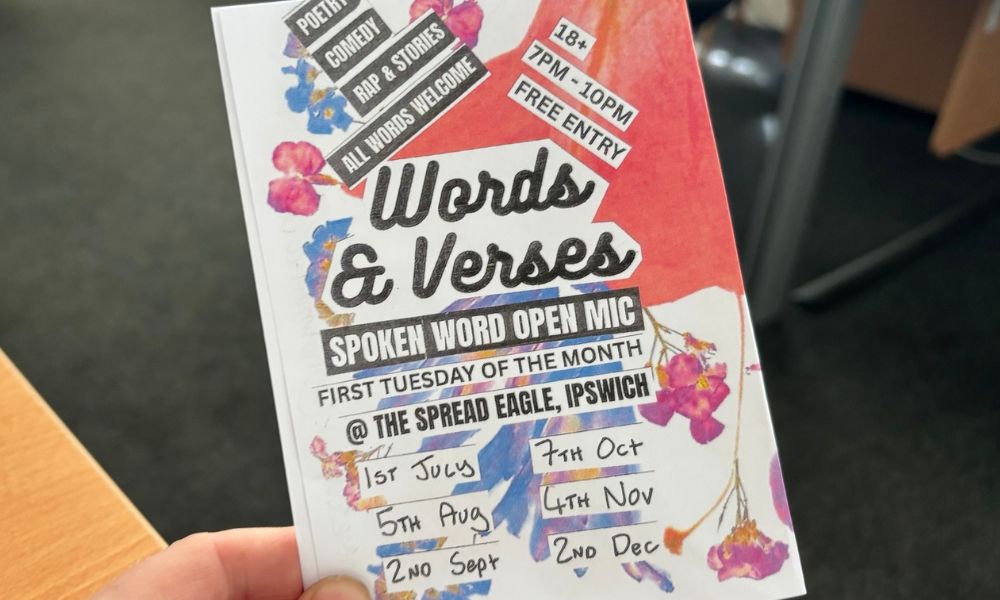 POETRY
COMEDY
RAP & STORIES
ALL WORDS WELCOME
18+
7PM - 10PM
FREE ENTRY
Words
& Verses
SPOKEN WORD OPEN MIC
FIRST TUESDAY OF THE MONTH
@ THE SPREAD EAGLE, IPSWICH
1ST JULY
5TH Aug
2ND Sept
7TH Oct
4TH Nov
2ND Dec